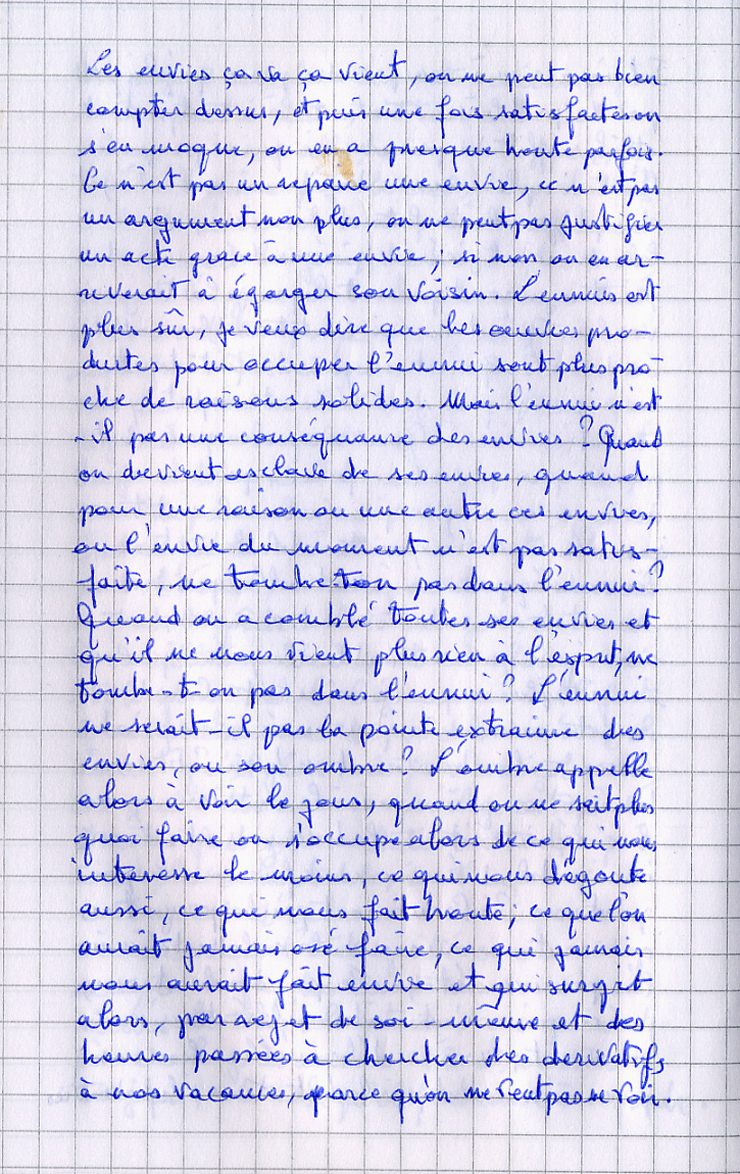 Les envies ça va ça vient, on ne peut pas bien
compter dessus, et puis une fois satisfaites on
s'en moque, on en a presque honte parfois.
Ce n'est pas un repaire une envie, ce n'est pas
un argument non plus, on ne peut pas justifier
un acte grace à une envie; si non on en ar-
riverait à égorger son voisin. L'ennuis est
plus sûr, je veux dire que les oeuvres pro-
duites pour occuper l'ennui sont plus pro-
che de raisons solides. Mais l'ennui n'est
-il pas une conséquance des envies ? Quand
on devient esclave de ses envies, quand
pour une raison ou une autre ces envies,
ou l'envie du moment n'est pas satis-
faite, ne tombe-ton pas dans l'ennui ?
Quand on a comblé toutes ses envies et
qu'il ne nous vient plus rien à l'esprit, ne
tombe-t-on pas dans l'ennui ? L'ennui
ne serait-il pas la pointe extraime des
envies, ou son ombre ? L'ombre appelle
alors à voir le jour, quand on ne sait plus
quoi faire on s'occupe alors de ce qui nous
interesse le moins, ce qui nous dégoute
aussi, ce qui nous fait honte; ce que l'on
aurait jamais osé faire, ce qui jamais
nous aurait fait envie et qui surgit
alors, par rejet de soi-même et des
heures passées à chercher des derivatifs
à nos vacances, parce qu'on ne veut pas se voir.